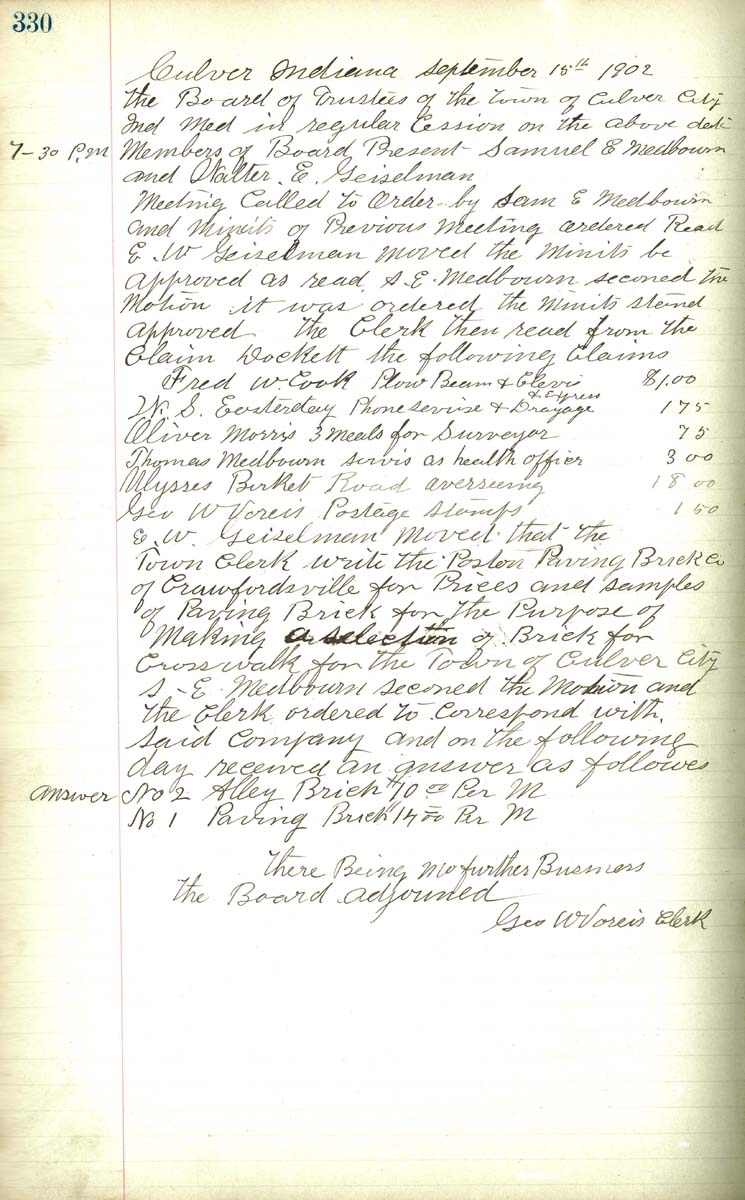 330
Culver Indiana September 15th 1902
the Board of Trustees of the town of Culver City
Ind Med in regular Cession on the above date
7-30 P.M Members of Board Present Samuel E Medbourn
and Walter. E. Geiselman
Meeting Called to Order by Sam E Medbourn
and Minits of Previous Meeting ordered Read
E. W Geiselman moved the Minits be
approved as read S. E. Medbourn seconed the
Motion it was ordered the Minits stand
approved the Clerk then read from the
Claim Dockett the following Claims
Fred W. Cook Plow Beam & Clevis $1.00
W. S. Easterday Phone servise & Drayage & Express 175
Oliver Morris 3 meals for Surveyor 75
Thomas Medbourn servis as health offier 3 00
Ulysses Burket Road overseeing 18 00
Geo W Voreis Postage Stamps 1 50
E. W. Geiselman moved that the
Town Clerk write the Poston Paving Brick Co
of Crawfordsville for Prices and samples
of Paving Brick for the Purpose of
Making a selection of Brick for
Crosswalk for the Town of Culver City
S. E. Medbourn seconed the Motion and
the Clerk ordered to Correspond with
said Company and on the following
day received an answer as followes
answer No 2 Alley Brick $10 00 Per M
No 1 Paving Brick 14 00 Per M
there Being no further Business
the Board adjouned
Geo W Voreis Clerk